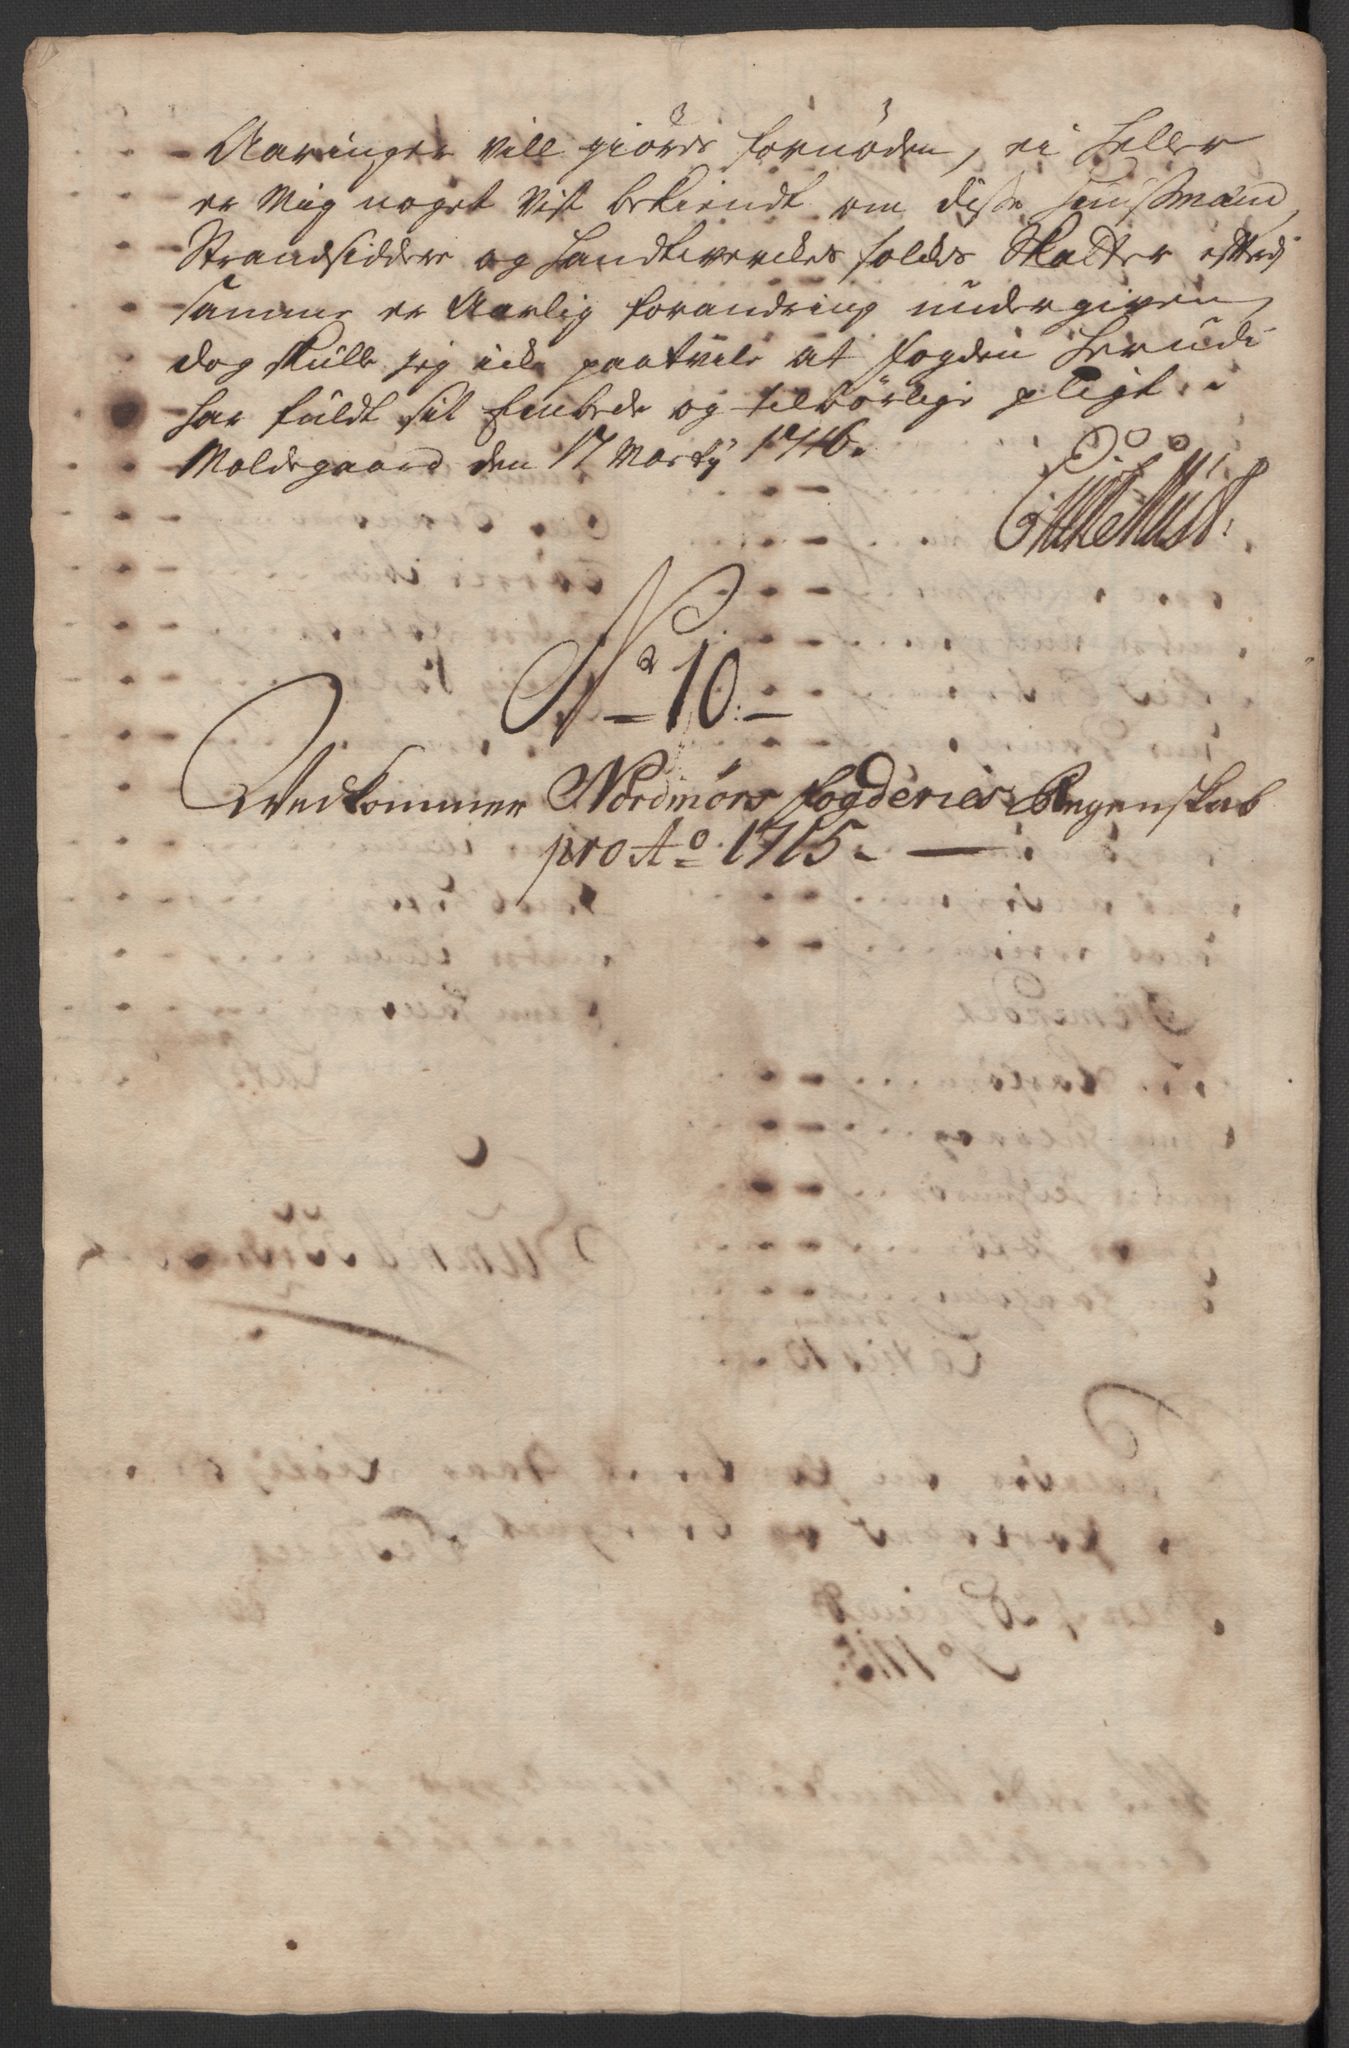 Aaringer vill giøres fornøden, ei heller
er Mig noget Vist bekiendt om disse Huusmænd,
Strandsiddere og Handtverckes folckes Skatter efterdj
samme er Aarlig forandring undergiven,
dog skulle jeg icke paatvile at fogden herudi
har fuldt sit Embede og tilbørlige pligt.
Moldegaard den 17 Marty 1716.
E Must.
No 10.
Vedkommer Nordmørs fogderies Regenskab
pro Ao 1715.